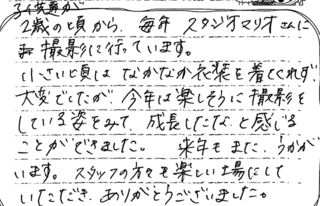 子供達が
2歳の頃から、毎年 スタジオマリオさんに
お撮影に行っています。
小さい頃は なかなか衣装を着てくれず、
大変でしたが、今年は楽しそうに撮影を
している姿をみて、成長したなと感じる
ことができました。 来年もまた、うかが
います。スタッフの方々も楽しい場にして
いただき、ありがとうございました。